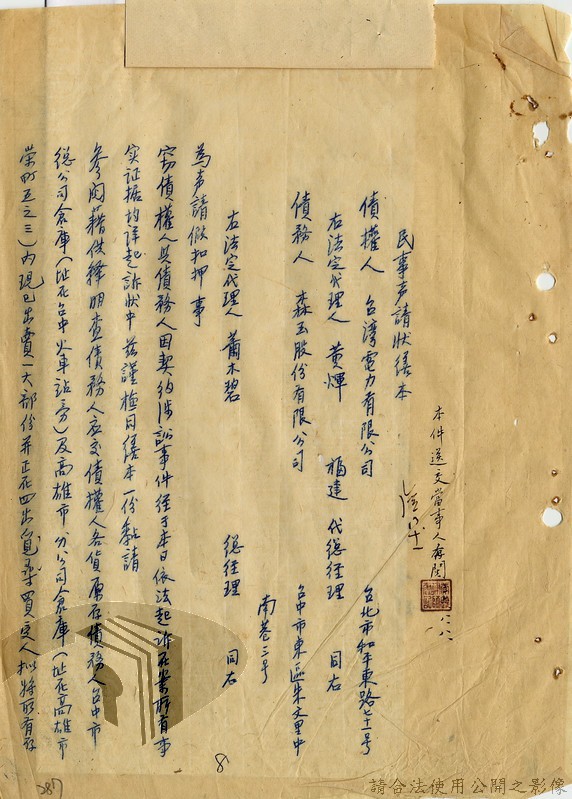 本件送交當事人存閱
民事声請狀繕本
債權人 台湾電力有限公司 台北市和平東路七十一号
右法定代理人 黄煇 福建 代總経理 同右
債務人 森玉股份有限公司 台中市東區朱文里中
南巷三号
右法定代理人 蕭木碧 総経理 同右
為声請假扣押事
窃債權人與債務人因契約涉訟事件経于本日依法起訴在案所有事
实証据均詳起訴狀中茲謹檢同繕本一份黏請
参閱藉供釋明查債務人应交債權人各貨原存債務人台中市
総公司倉庫(址在台中火車站旁)及高雄市分公司倉庫(址在高雄市
栄町五之三)内現已出賣一大部份并正在四出覓尋買受人拟將所有存
8
087
請合法使用公開之影像